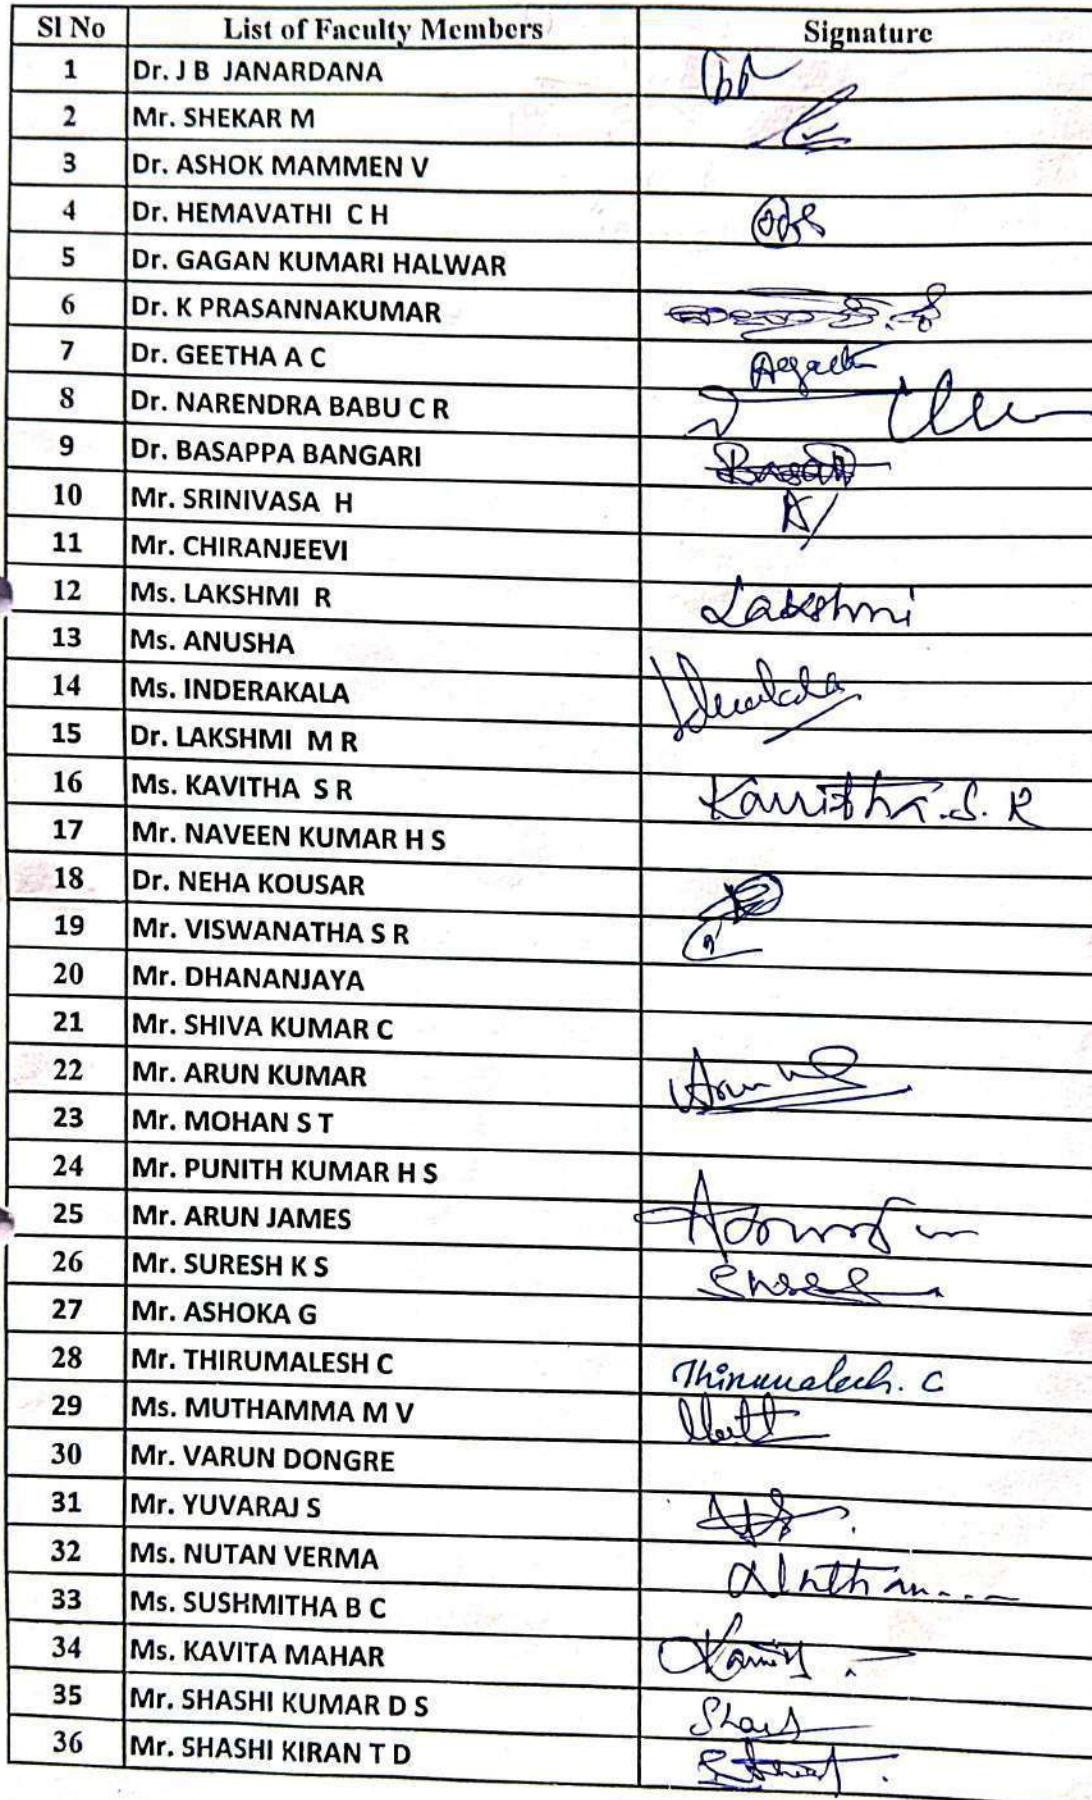 Sl No List of Faculty Members Signature
1 Dr. J B JANARDANA
2 Mr. SHEKAR M
3 Dr. ASHOK MAMMEN V
4 Dr. HEMAVATHI C H
5 Dr. GAGAN KUMARI HALWAR
6 Dr. K PRASANNAKUMAR
7 Dr. GEETHA A C
8 Dr. NARENDRA BABU C R
9 Dr. BASAPPA BANGARI
10 Mr. SRINIVASA H
11 Mr. CHIRANJEEVI
12 Ms. LAKSHMI R Lakshmi
13 Ms. ANUSHA
14 Ms. INDERAKALA
15 Dr. LAKSHMI M R
16 Ms. KAVITHA S R Kavitha. S. R
17 Mr. NAVEEN KUMAR H S
18 Dr. NEHA KOUSAR
19 Mr. VISWANATHA S R
20 Mr. DHANANJAYA
21 Mr. SHIVA KUMAR C
22 Mr. ARUN KUMAR
23 Mr. MOHAN S T
24 Mr. PUNITH KUMAR H S
25 Mr. ARUN JAMES
26 Mr. SURESH K S
27 Mr. ASHOKA G
28 Mr. THIRUMALESH C Thirumalesh. C
29 Ms. MUTHAMMA M V
30 Mr. VARUN DONGRE
31 Mr. YUVARAJ S
32 Ms. NUTAN VERMA
33 Ms. SUSHMITHA B C
34 Ms. KAVITA MAHAR
35 Mr. SHASHI KUMAR D S
36 Mr. SHASHI KIRAN T D